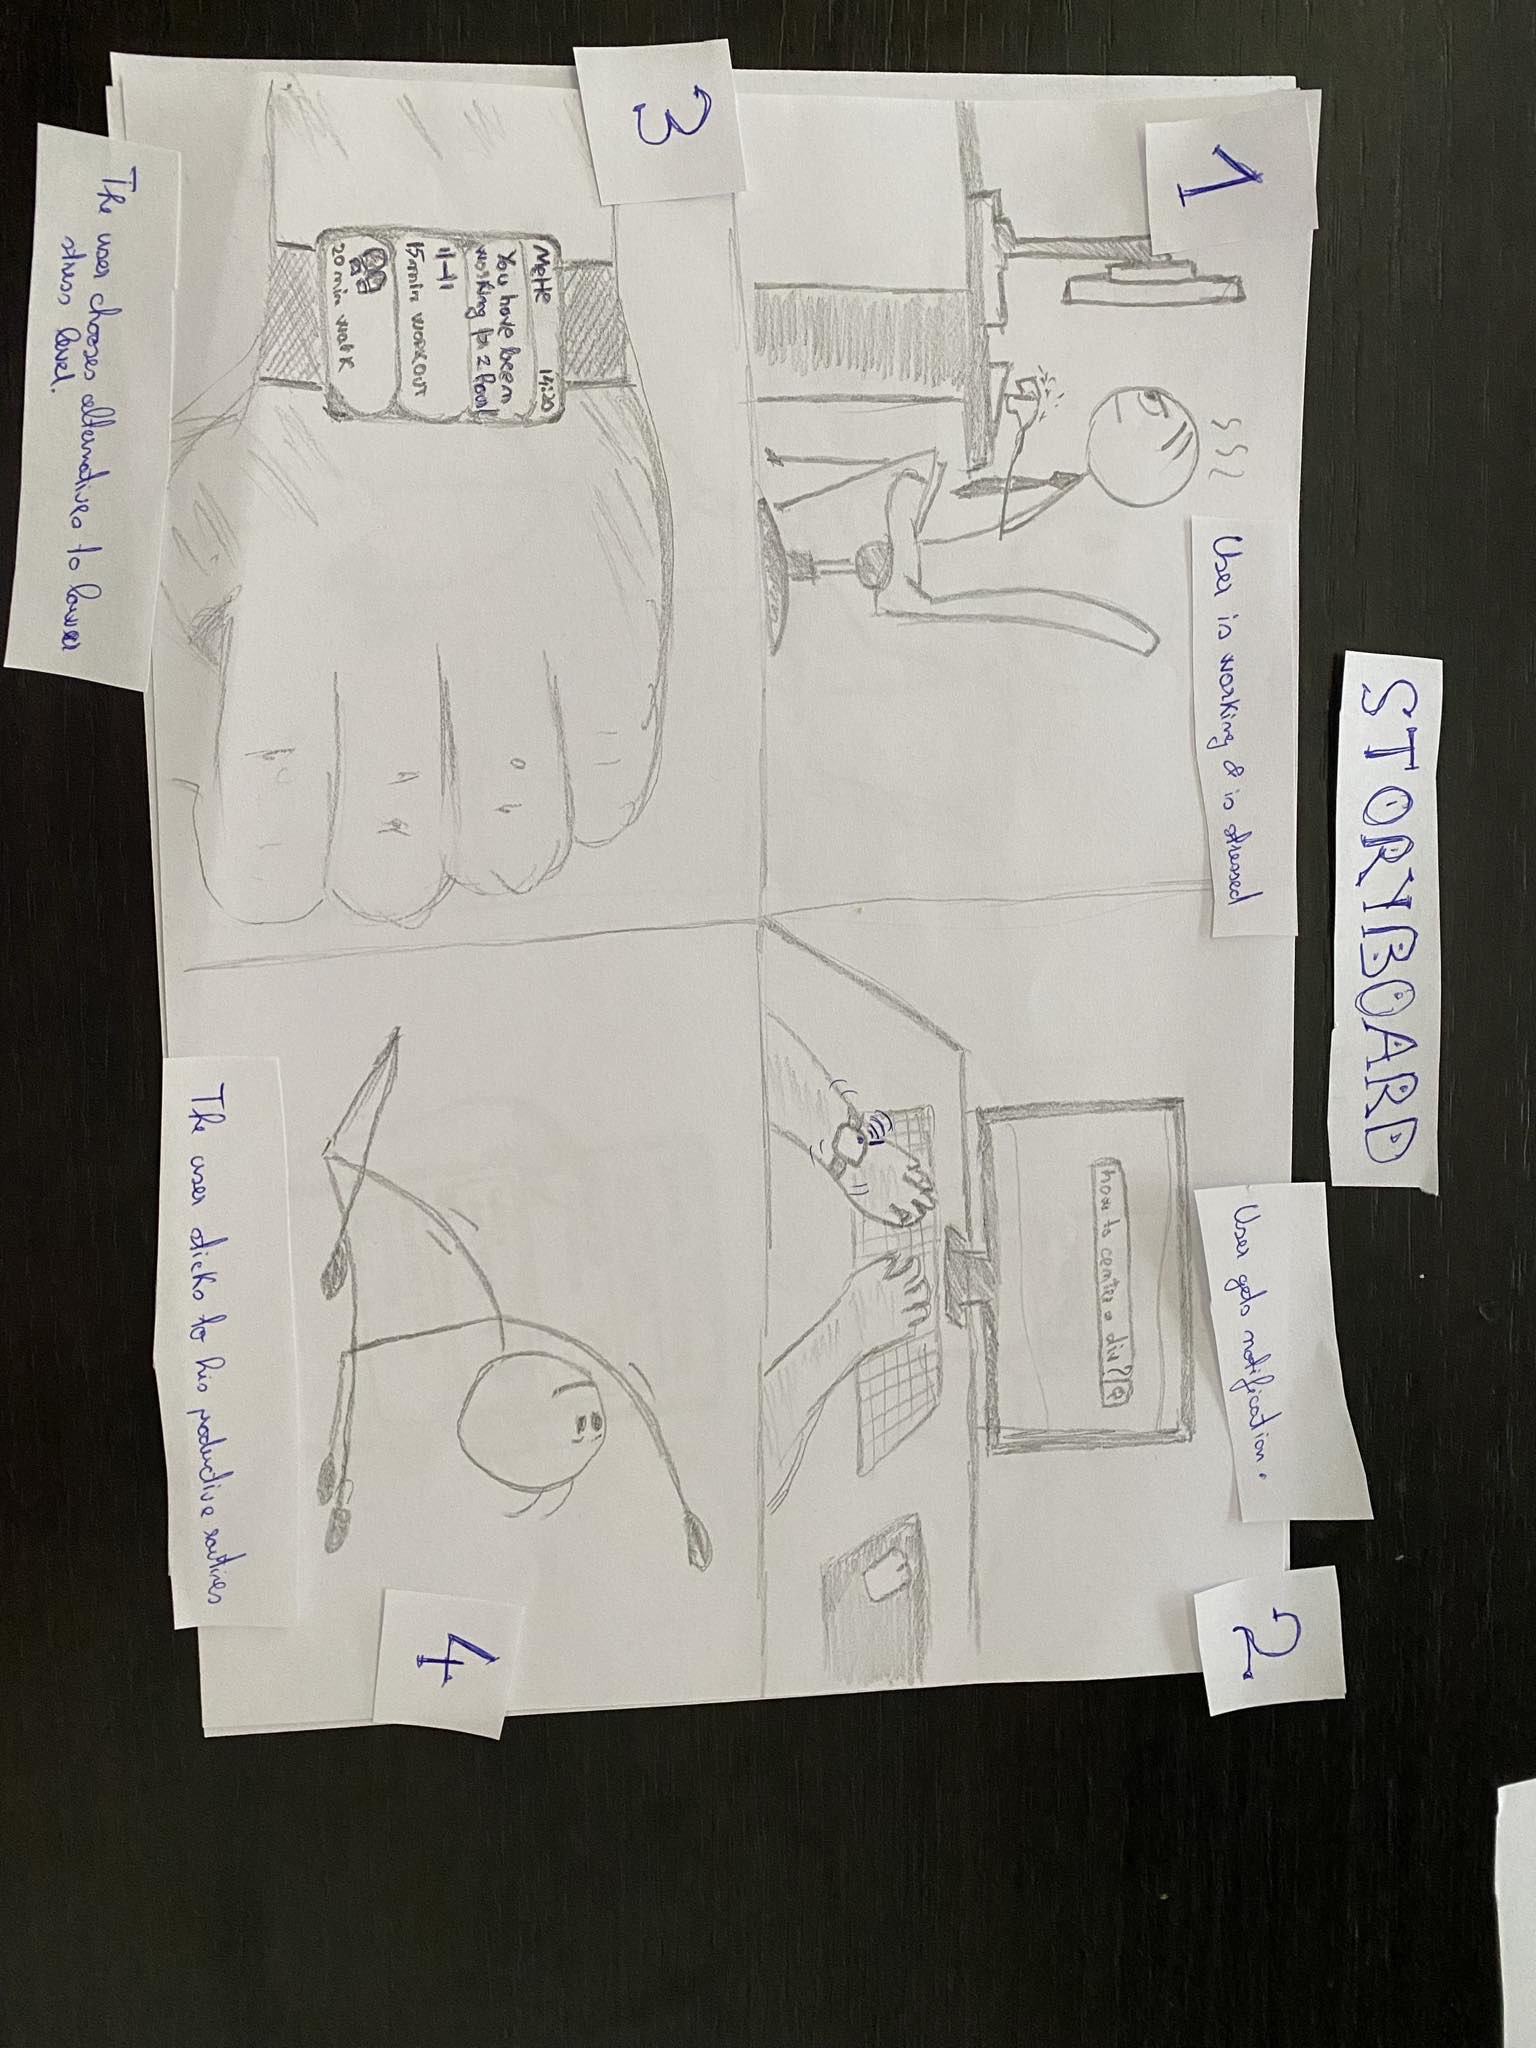 STORYBOARD
1
User is working & is stressed
2
User gets notification.
how to center a div?
3
MeHe 14:20
You have been
working for 2 hours
15min workout
20 min walk
The user chooses alternatives to lower
stress level.
4
The user sticks to his productive routines